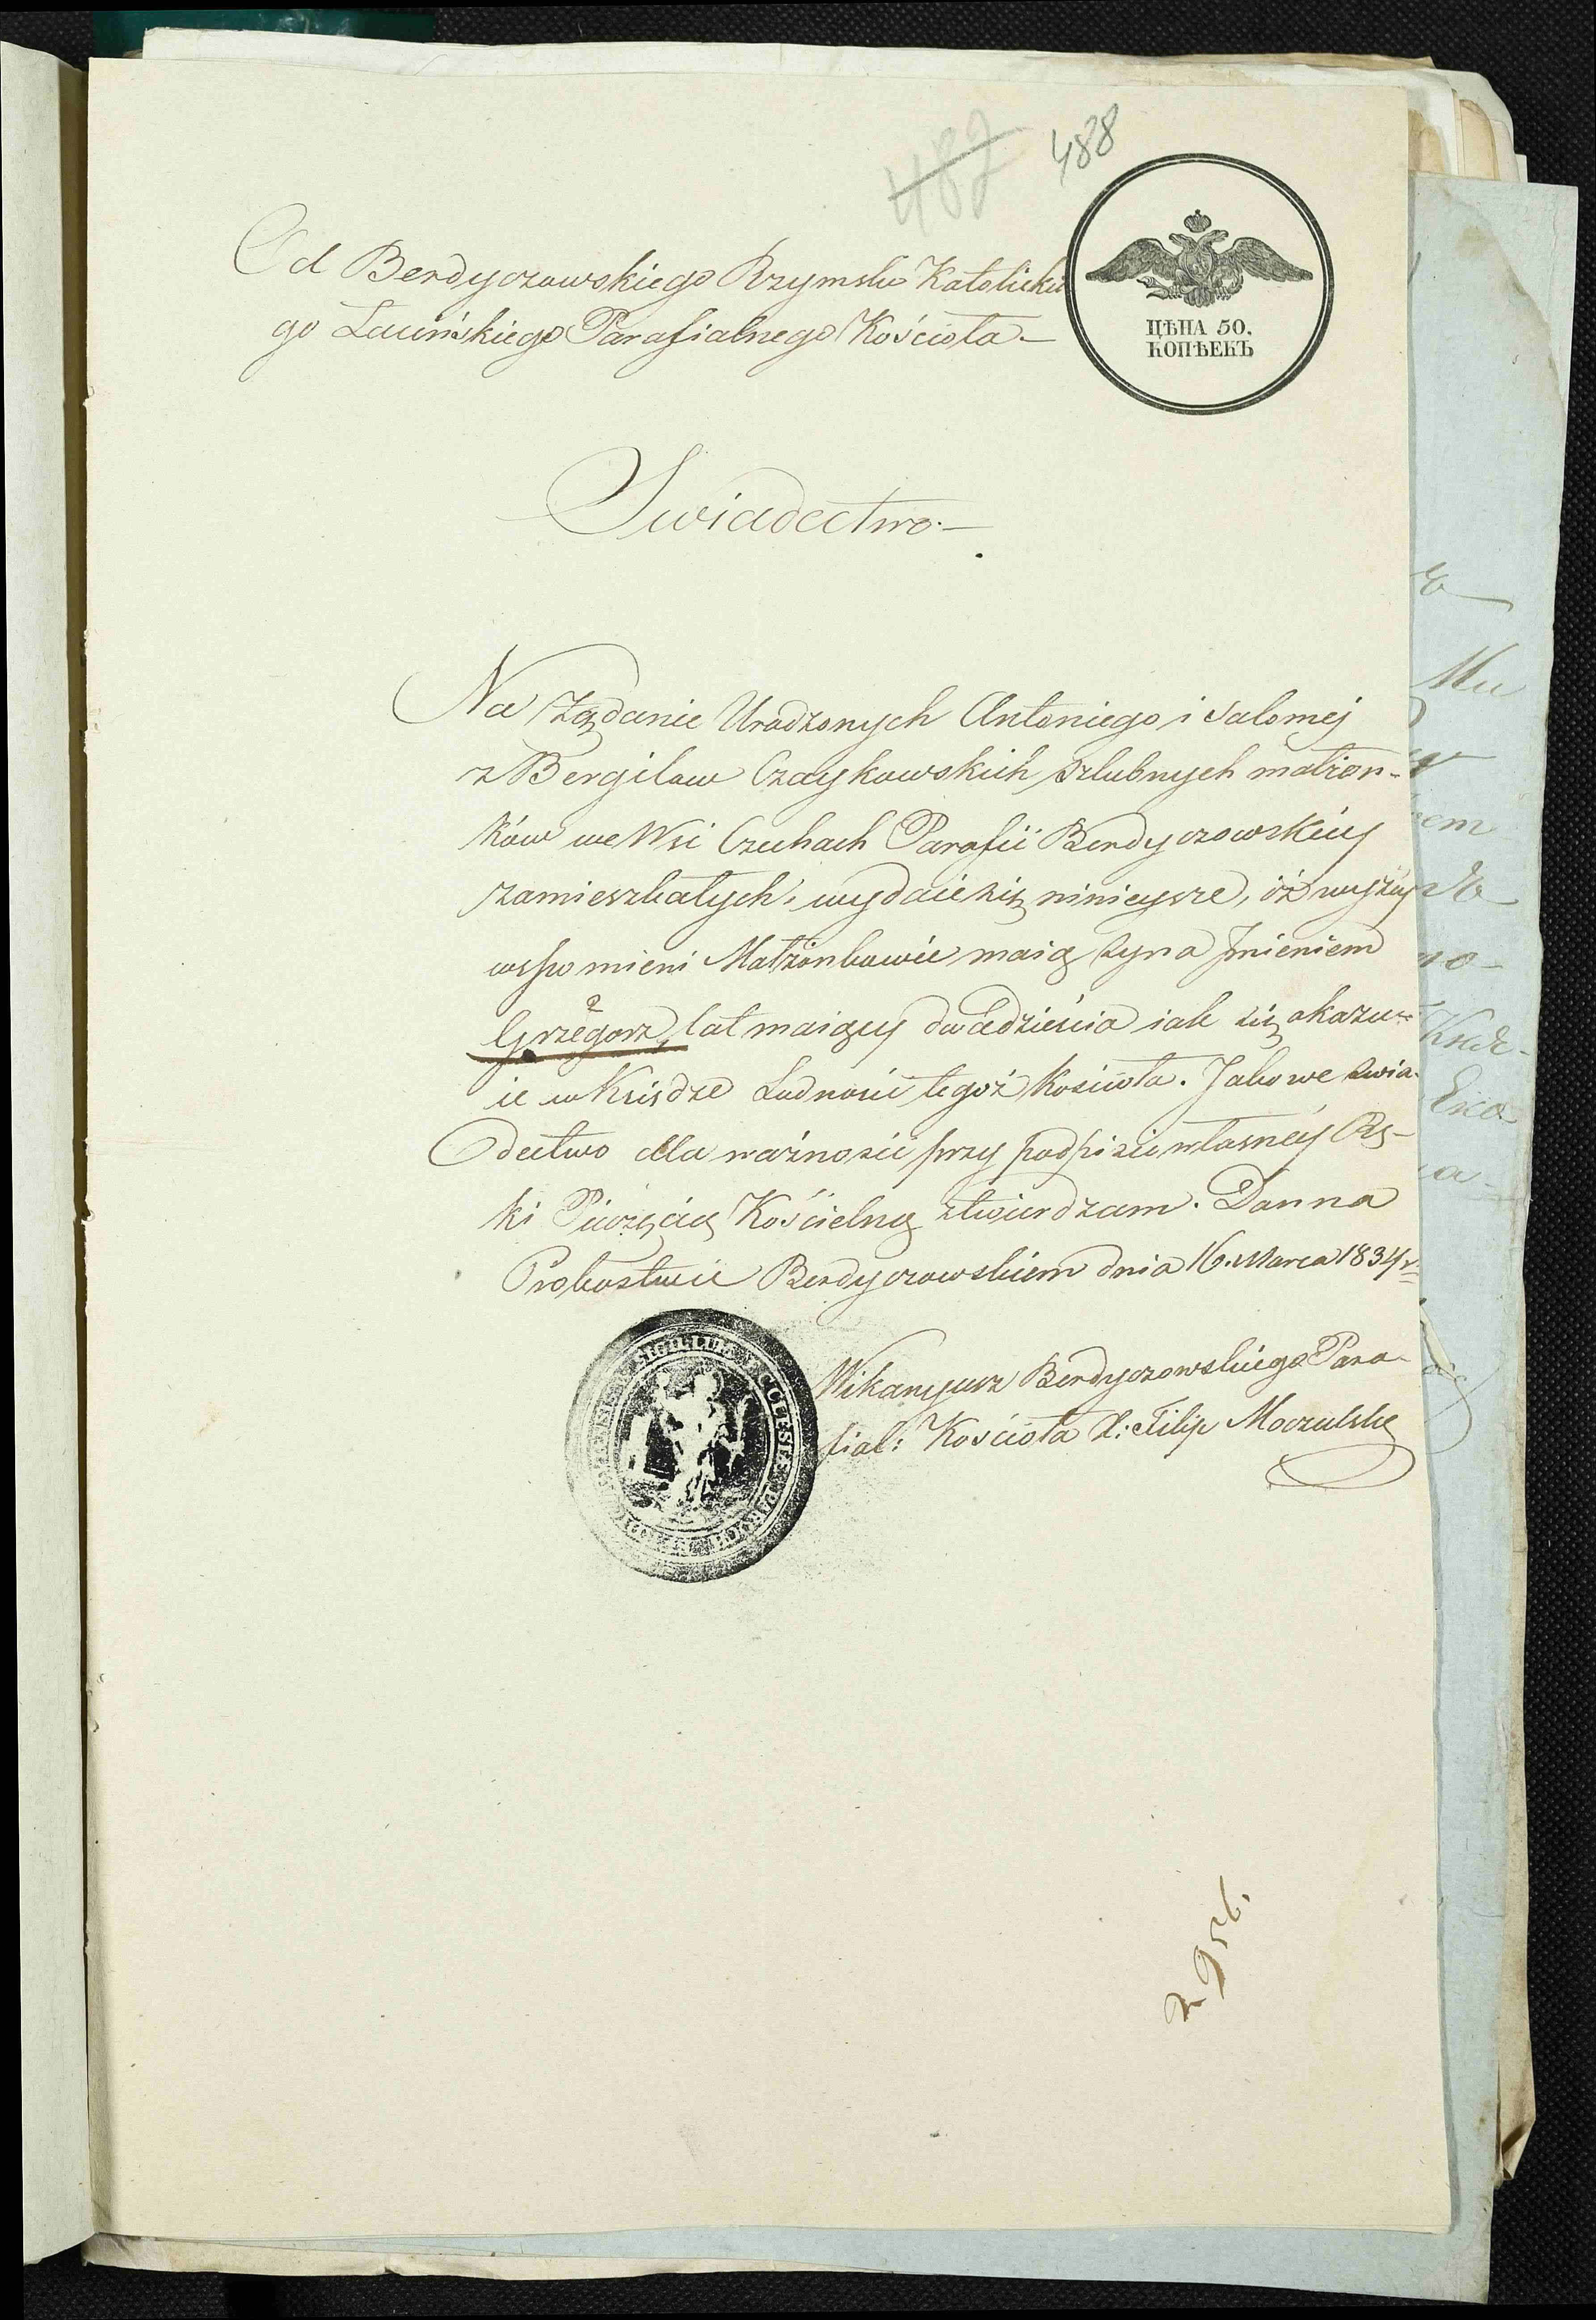 482 488
Od Berdyczowskiego Rzymsko Katolickie
go Łacińskiego Parafialnego Kościoła.—
ЦѢНА 50.
КОПѢЕКЪ
Swiadectwo.—
Na Żądanie Urodzonych Antoniego i Salomej
z Bergilow Czaykowskich szlubnych małżon-
ków we Wsi Czechach Parafii Berdyczowskiey
zamieszkałych, wydaie się ninieysze, iż wyżey
wspomieni Małżonkowie maią syna Imieniem
Grzegorz, lat maiący dwadzieścia iak się okazu=
ie w Księdze Ludności tegoż Kościoła. Jakowe swia-
dectwo dla ważności przy podpisie własnéy Rę-
ki Pieczęcią Kościelną ztwierdzam. Dan na
Probostwie Berdyczowskiem dnia 16. Marca 1834 r=
Wikaryusz Berdyczowskiego Para-
fial: Kościoła X: Filip Moczulski
SIGILLUM ECCLESIÆ
N 956.